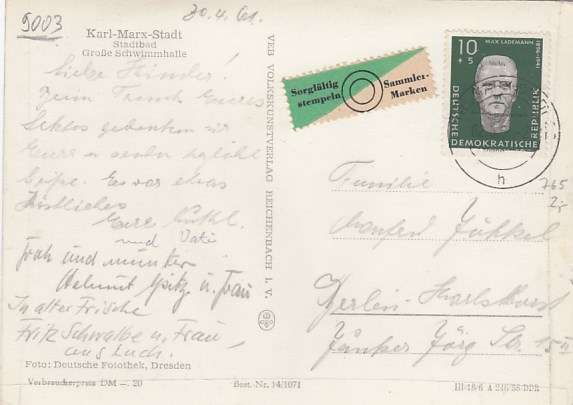 5003
30.4.61.
Karl-Marx-Stadt
Stadtbad
Große Schwimmhalle
Liebe Kinder!
Zum Trunk Eueres
Sektes gedenken wir
Eurer u.
Es war etwas
Köstliches
Eure
und Vati
Froh und munter
Helmut Spitz u. Frau
In alter Frische
Fritz Schwalbe u. Frau
aus Luch.
Foto: Deutsche Fotothek, Dresden
Verbraucherpreis DM —. 20
Best.-Nr. 14/1071
VEB VOLKSKUNSTVERLAG REICHENBACH I. V.
Sorgfältig
stempeln
Sammler-
Marken
10
+5
MAX LADEMANN
1896-1941
DEUTSCHE
DEMOKRATISCHE
REPUBLIK
h
765
2,-
Familie
Manfred Jükkel
Berlin-Karlshorst
Junker Jörg Str. 15 II
III/18/6 A 246/58/DDR